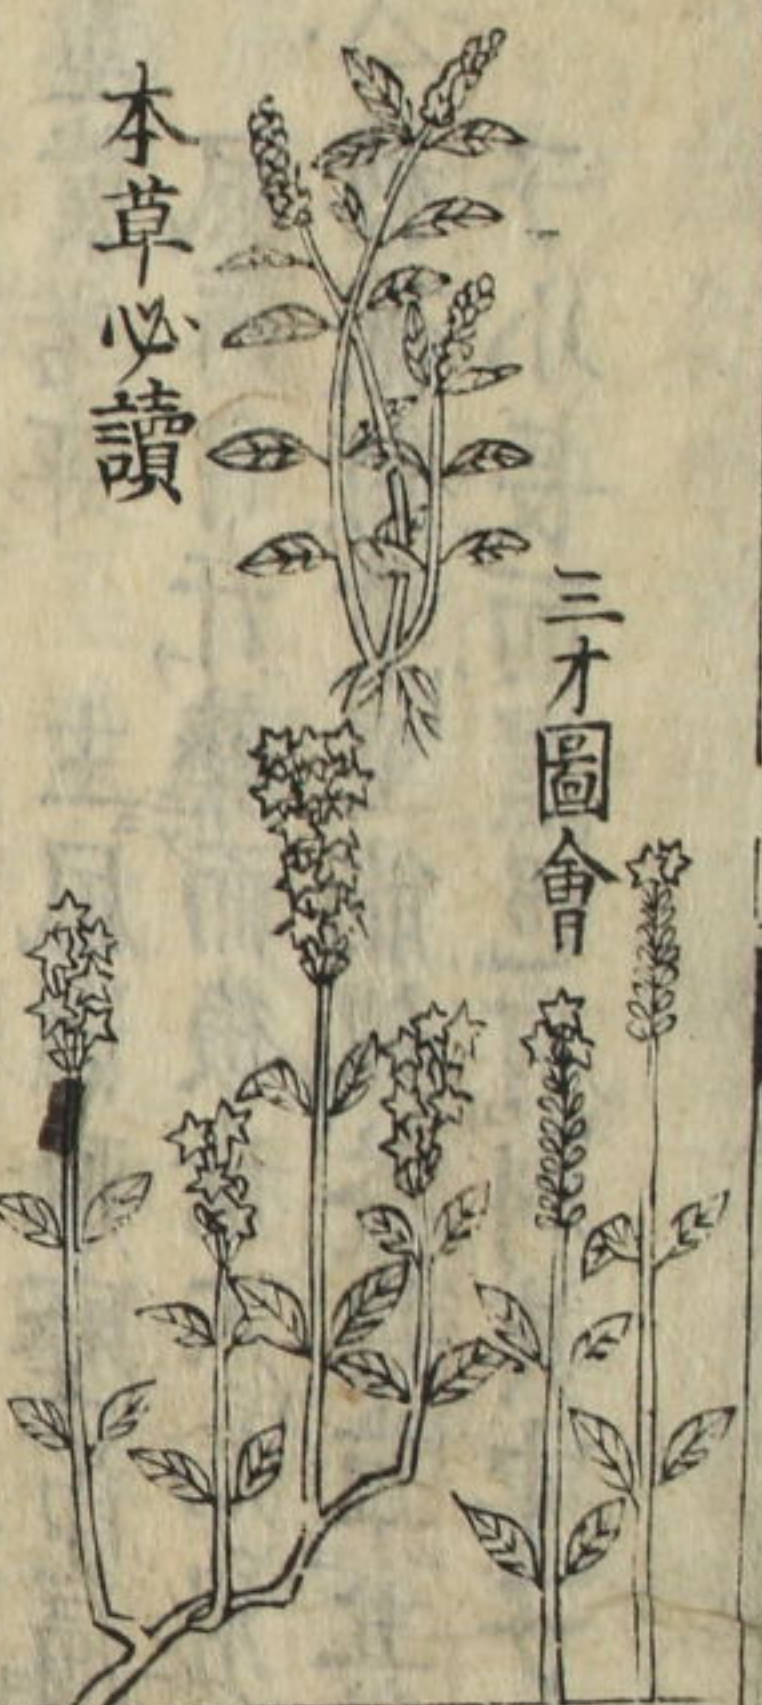 三才圖會
本草必讀